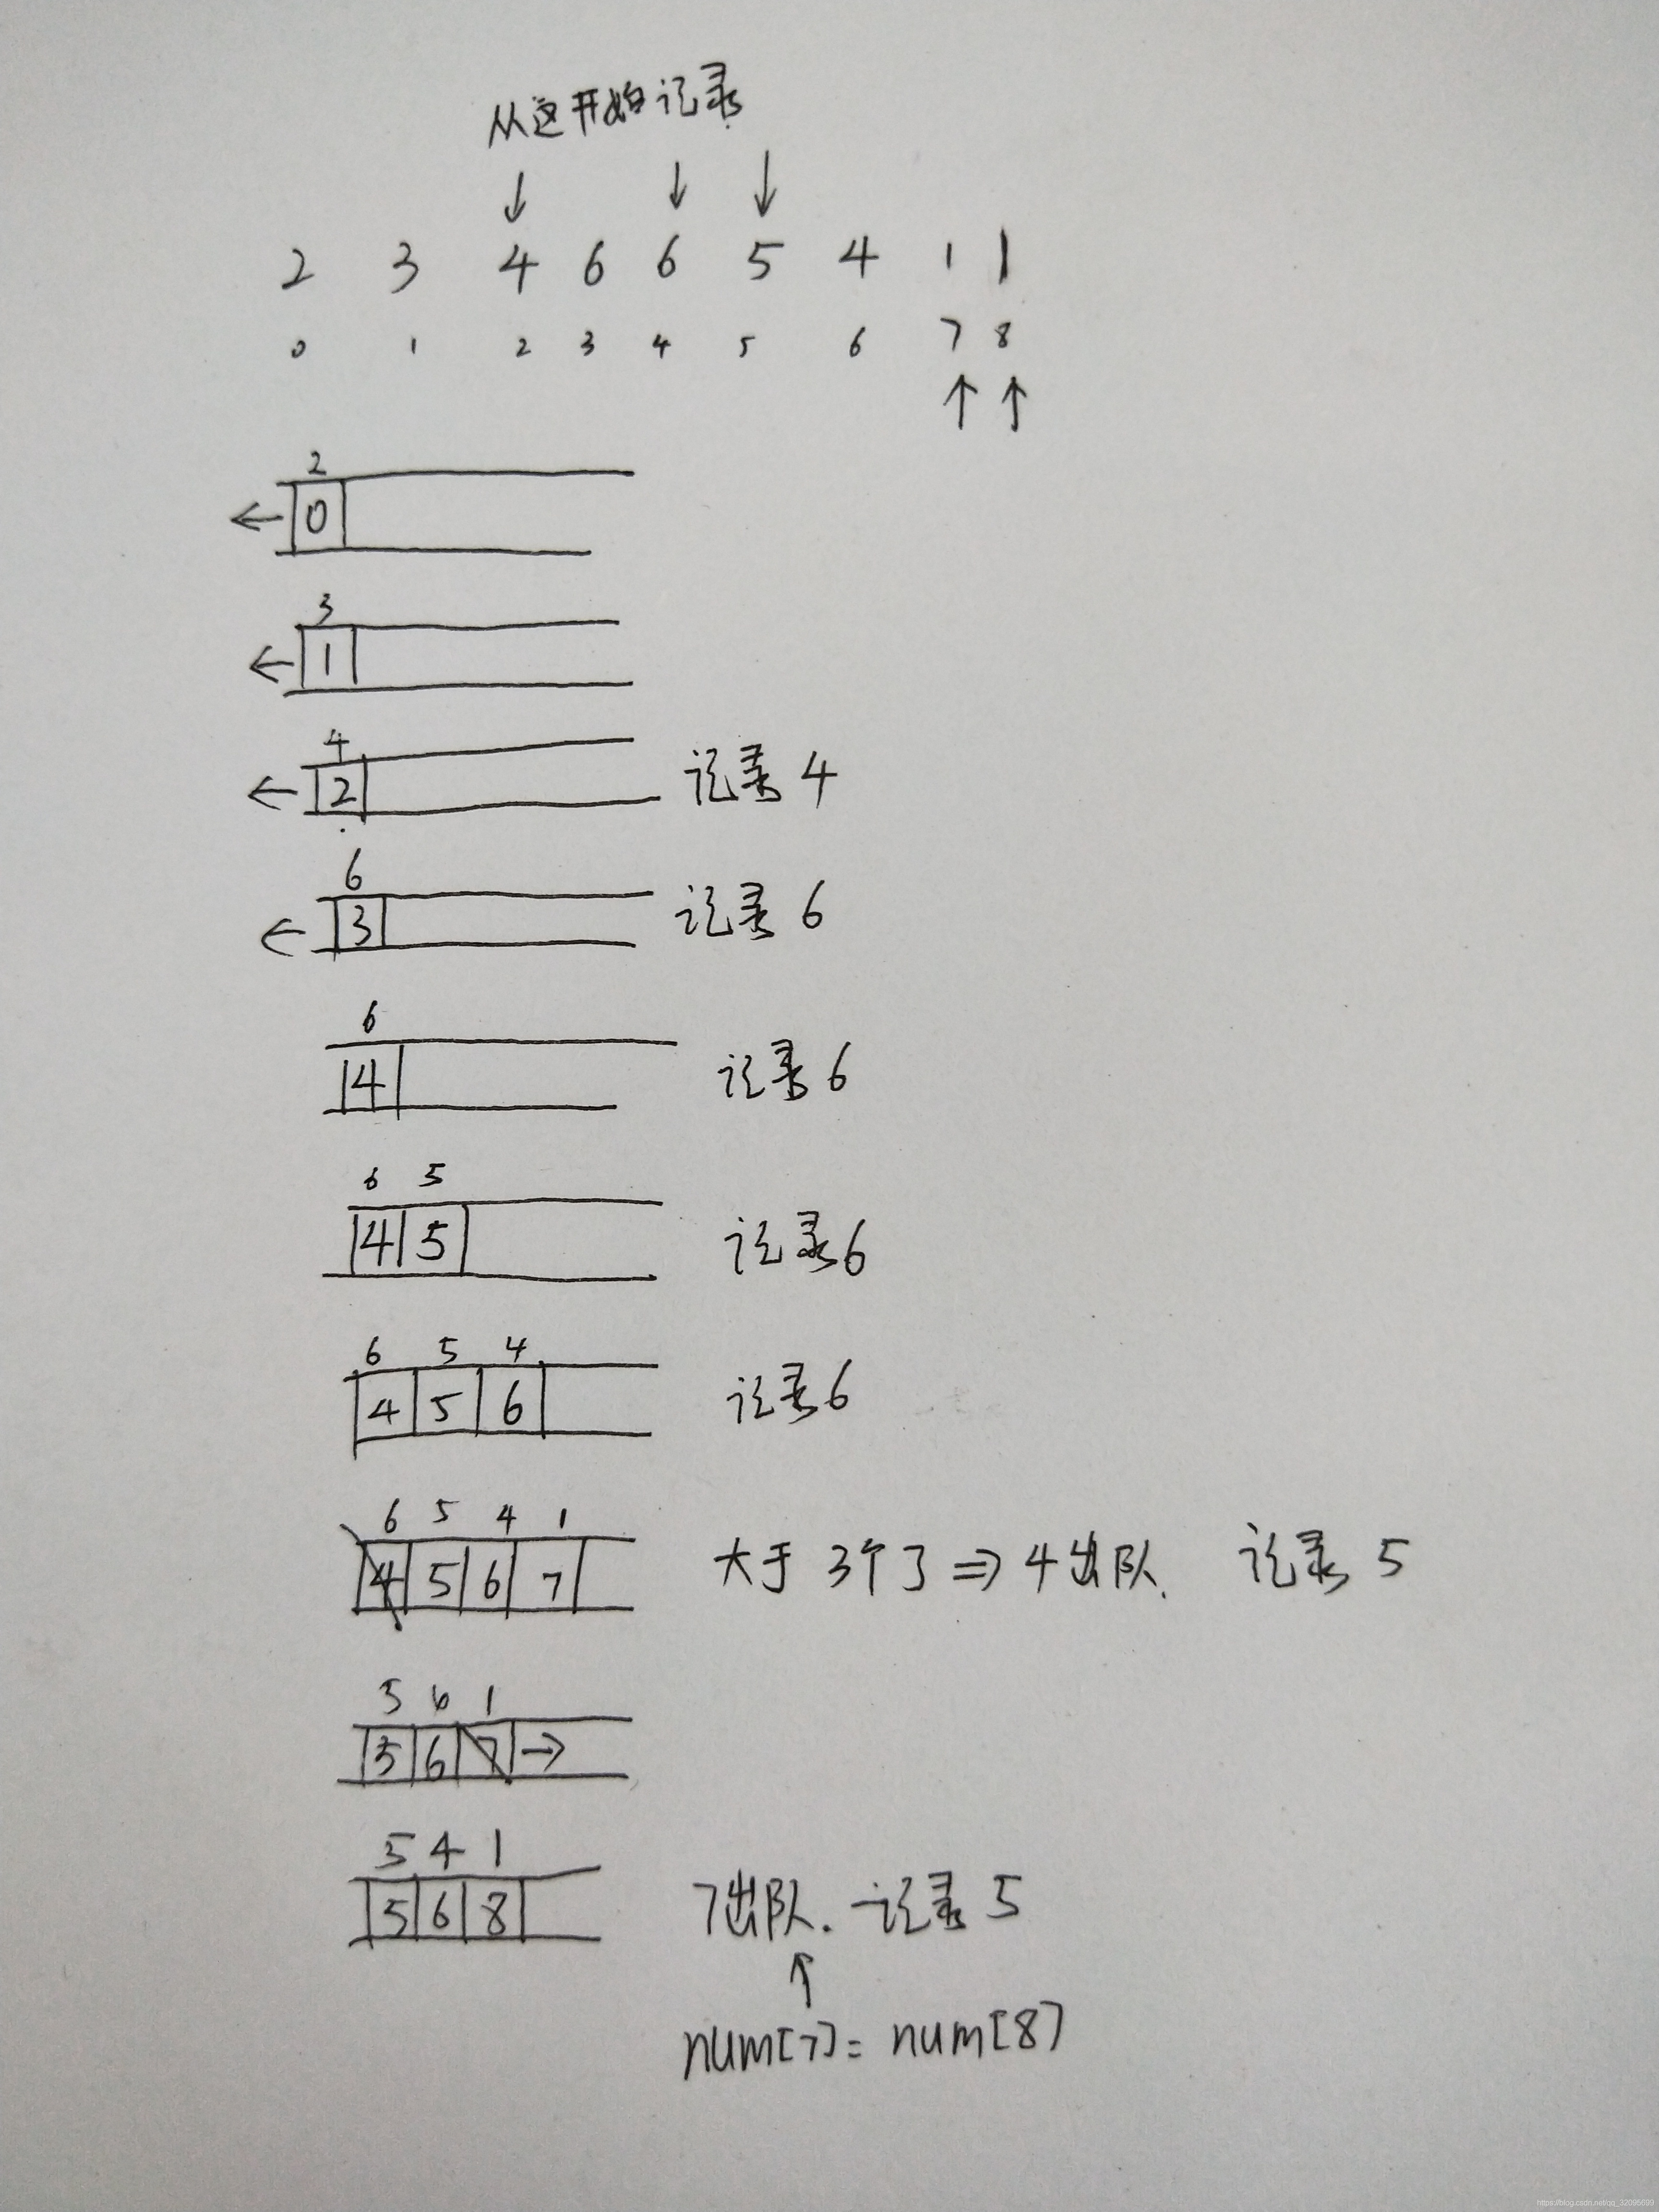 从这开始记录
2 3 4 6 6 5 4 1 1
0 1 2 3 4 5 6 7 8
2
0
3
1
4
2 记录 4
6
3 记录 6
6
4 记录 6
6 5
4 5 记录 6
6 5 4
4 5 6 记录 6
6 5 4 1
4 5 6 7 大于 3个了 ⇒ 4出队. 记录 5
5 6 1
5 6 7 →
5 4 1
5 6 8 7出队. 记录 5
num[7]= num[8]
https://blog.csdn.net/qq_32095699